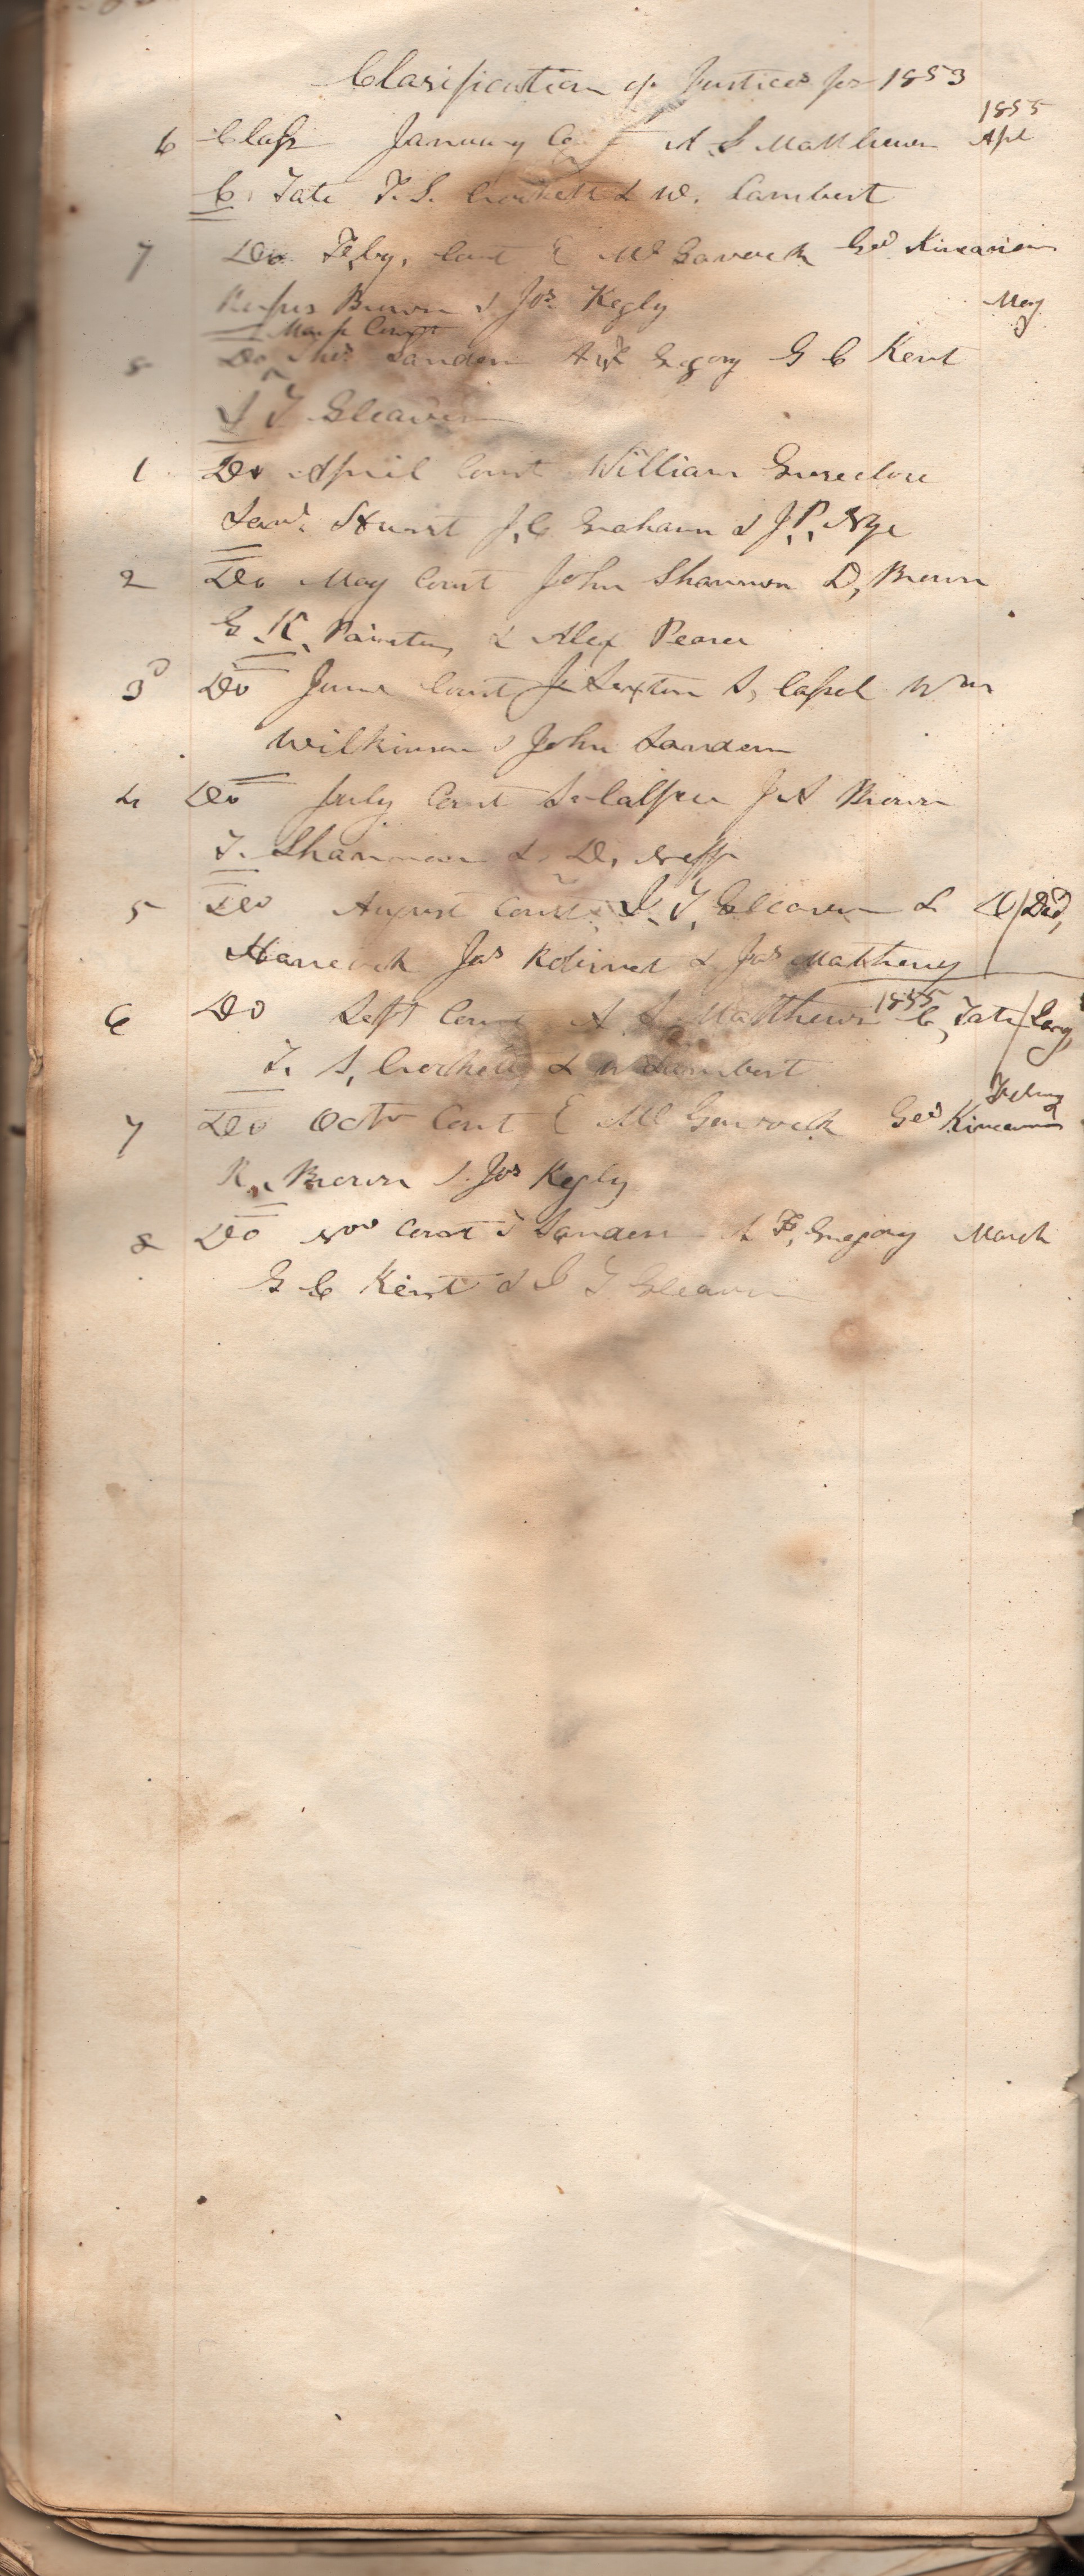 Clasification of Justices for 1853
1855
6 Class January Court A S Matthews Apl
C. Tate T. S. Crockett & W. Lambert
7 Do Feby. Court E McGavock Geo Kincanon
Rufus Brown & Jos Kegly May
March Court
8 Do Thos Sanders A F Gregory G C Kent
J T Gleaves
1 Do April Court William
Stuart J. C Graham & J. P. Nye
2 Do May Court John Shannon D, Brown
G. K. Painter, & Alex Pearce
3 Do June Court Sexton S, Cassel Wm
Wilkinson & John Sanders
4 Do July Court J A Brown
T. Shannon & D. Neff
5 Do August Court J. T. Gleaves & D/Decd,
Jas & Jas Matheny
6 Do Sept Court A S Matthews 1855 C, Tate/Jany
T. S, Crockett & W Lambert
Febuy
7 Do Octr Court E McGavock Geo Kincannon
R. Brown & Jos Kegly
8 Do Nov Court T Sanders A F, Gregory March
G C Kent & J T Gleaves